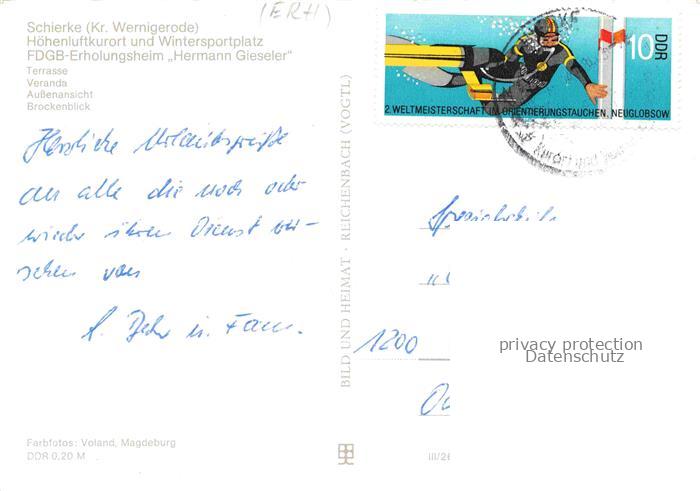 (ERH)
Schierke (Kr. Wernigerode)
Höhenluftkurort und Wintersportplatz
FDGB-Erholungsheim „Hermann Gieseler"
Terrasse
Veranda
Außenansicht
Brockenblick
Herzliche Urlaubsgrüße
an alle die noch oder
wieder ihren Dienst ver-
sehen von
u. Fam.
Farbfotos: Voland, Magdeburg
DDR 0,20 M
BILD UND HEIMAT · REICHENBACH (VOGTL)
10 DDR
2. WELTMEISTERSCHAFT IM ORIENTIERUNGSTAUCHEN, NEUGLOBSOW
Kurort und
1200
privacy protection
Datenschutz
III/26